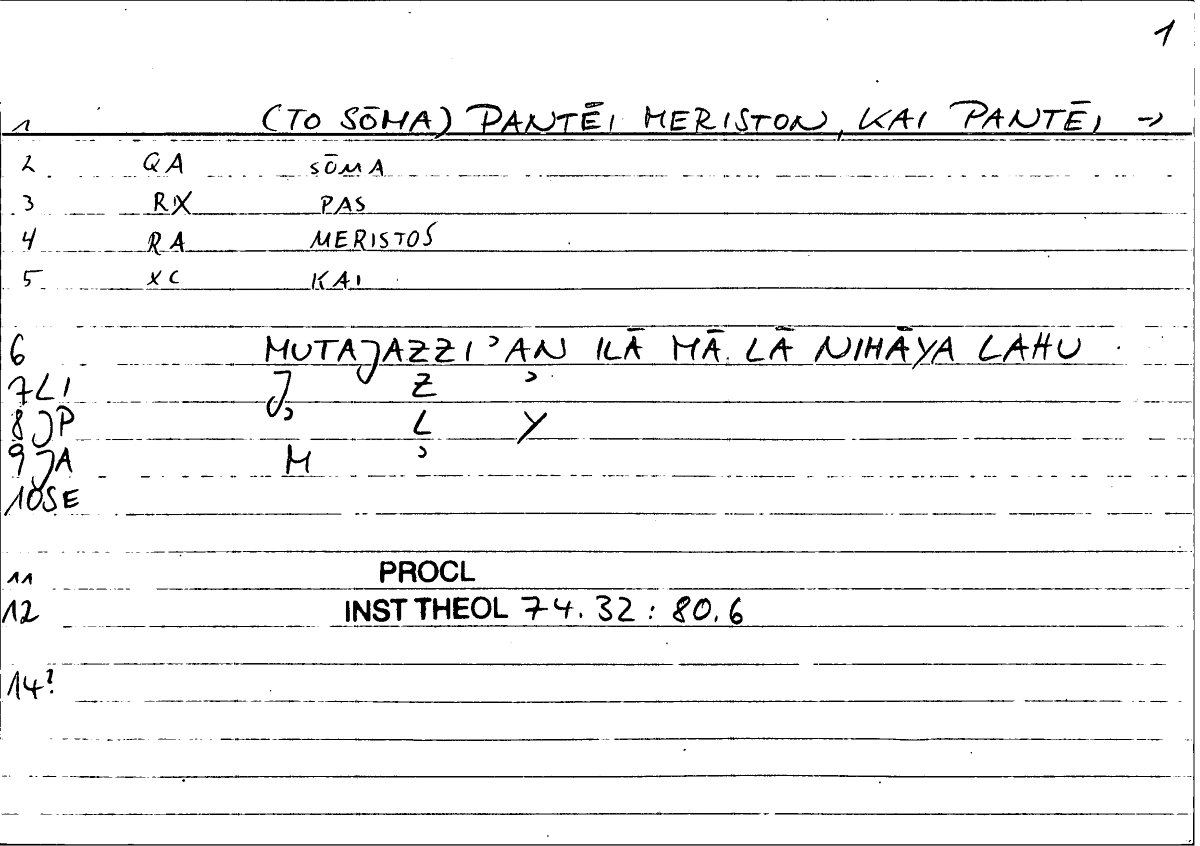 1
1 (TO SŌMA) PANTĒI MERISTON, KAI PANTĒI →
2 QA SŌMA
3 RX PAS
4 RA MERISTOS
5 XC KAI
6 MUTAJAZZI'AN ILĀ MĀ LĀ NIHĀYA LAHU
7 LI J Z '
8 JP ' L Y
9 JA M '
10 SE
11 PROCL
12 INST THEOL 74.32 : 80.6
14?